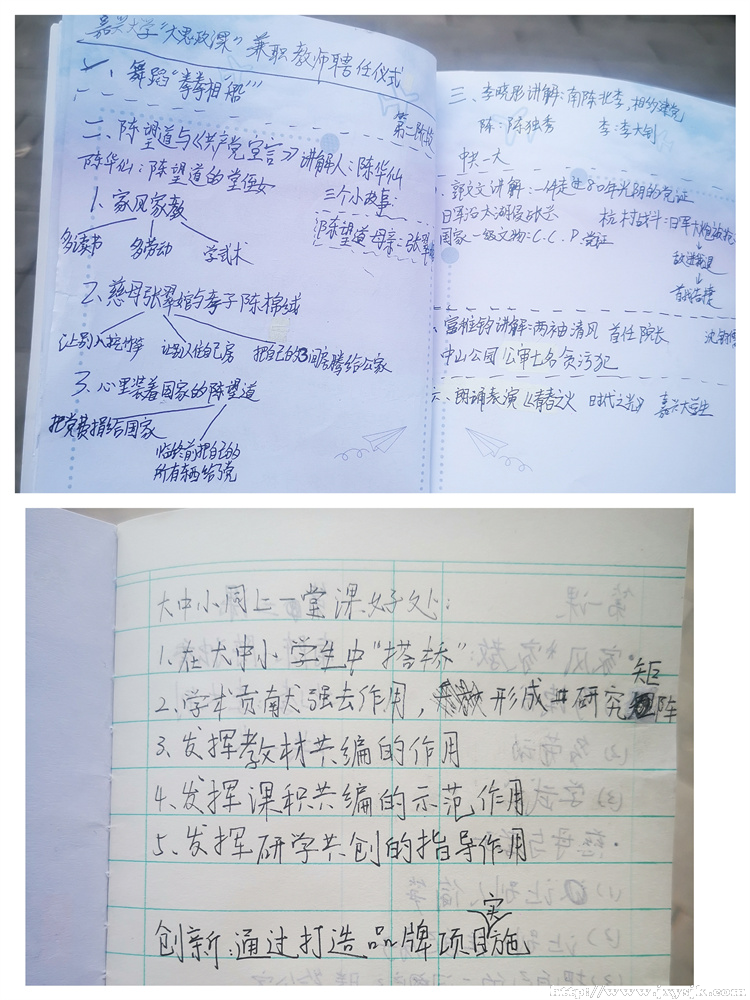 嘉兴大学“大思政课”兼职教师聘任仪式
一、舞蹈“拳拳相
第二阶段
二、陈望道与《共产党宣言》讲解人：陈华仙
陈华仙：陈望道的堂侄女
三个小故事：
1、家风家教
陈望道母亲：张翠
多读书 多劳动 学武术
2、慈母张翠婠与孝子陈棉绒
让别人挖竹笋 让别人住自己房 把自己的 间房腾给公家
3、心里装着国家的陈望道
把党费捐给国家
临终前把自己的
所有东西给了党
三、李晓彤讲解：南陈北李，相约建党
陈：陈独秀 李：李大钊
中共一大
郭文文讲解：一件走进80年光阴的党证
日军沿太湖侵
村战斗：日军大炮被
国家一级文物：C.C.P.党证
敌进我退
首战告捷
讲解：两袖清风 首任院长
中山公园 公审七名贪污犯
六、朗诵表演《青春之火 时代之光》 嘉兴大学生
大中小同上一堂课好处：
1、在大中小学生中“搭桥”
2、学术贡献强去作用， 形成 研究矩阵
3、发挥教材共编的作用
4、发挥课积共编的示范作用
5、发挥研学共创的指导作用
创新：通过打造品牌项目实施
http://www.jxysjk.com